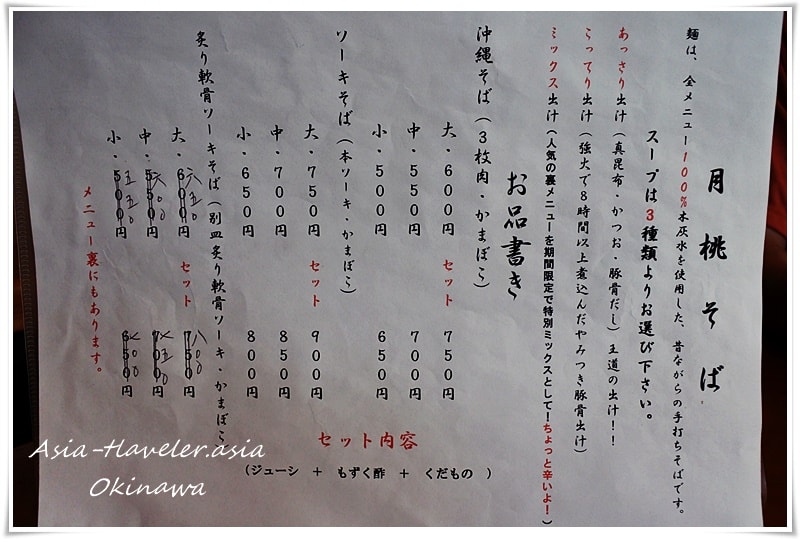 月桃そば
麺は、全メニュー100%木灰水を使用した、昔ながらの手打ちそばです。
スープは3種類よりお選び下さい。
あっさり出汁(真昆布・かつお・豚骨だし)王道の出汁!!
こってり出汁(強火で8時間以上煮込んだやみつき豚骨出汁)
ミックス出汁(人気の裏メニューを期間限定で特別ミックスとして!ちょっと辛いよ!)
お品書き
沖縄そば(3枚肉・かまぼこ)
大・600円 セット 750円
中・550円 700円
小・500円 650円
ソーキそば(本ソーキ・かまぼこ)
大・750円 セット 900円
中・700円 850円
小・650円 800円
炙り軟骨ソーキそば(別皿炙り軟骨ソーキ・かまぼこ)
大・六五0円 セット 八00円
中・六00円 七五0円
小・五五0円 七00円
メニュー裏にもあります。
セット内容
(ジューシ + もずく酢 + くだもの )
Asia-Traveler.asia
Okinawa